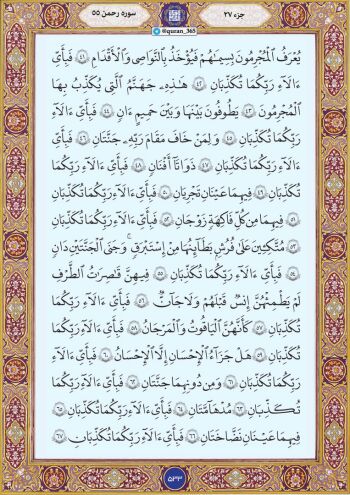 جزء ۲۷
سوره رحمن ۵۵
@quran_365
يُعْرَفُ الْمُجْرِمُونَ بِسِيمَاهُمْ فَيُؤْخَذُ بِالنَّوَاصِي وَالْأَقْدَامِ ٤١ فَبِأَيِّ
ءَالَآءِ رَبِّكُمَا تُكَذِّبَانِ ٤٢ هَٰذِهِ جَهَنَّمُ الَّتِي يُكَذِّبُ بِهَا
الْمُجْرِمُونَ ٤٣ يَطُوفُونَ بَيْنَهَا وَبَيْنَ حَمِيمٍ ءَانٍ ٤٤ فَبِأَيِّ ءَالَآءِ
رَبِّكُمَا تُكَذِّبَانِ ٤٥ وَلِمَنْ خَافَ مَقَامَ رَبِّهِ جَنَّتَانِ ٤٦ فَبِأَيِّ
ءَالَآءِ رَبِّكُمَا تُكَذِّبَانِ ٤٧ ذَوَاتَا أَفْنَانٍ ٤٨ فَبِأَيِّ ءَالَآءِ رَبِّكُمَا
تُكَذِّبَانِ ٤٩ فِيهِمَا عَيْنَانِ تَجْرِيَانِ ٥٠ فَبِأَيِّ ءَالَآءِ رَبِّكُمَا تُكَذِّبَانِ
٥١ فِيهِمَا مِن كُلِّ فَاكِهَةٍ زَوْجَانِ ٥٢ فَبِأَيِّ ءَالَآءِ رَبِّكُمَا تُكَذِّبَانِ
٥٣ مُتَّكِئِينَ عَلَىٰ فُرُشٍ بَطَائِنُهَا مِنْ إِسْتَبْرَقٍ ۚ وَجَنَى الْجَنَّتَيْنِ دَانٍ
٥٤ فَبِأَيِّ ءَالَآءِ رَبِّكُمَا تُكَذِّبَانِ ٥٥ فِيهِنَّ قَاصِرَاتُ الطَّرْفِ
لَمْ يَطْمِثْهُنَّ إِنسٌ قَبْلَهُمْ وَلَا جَانٌّ ٥٦ فَبِأَيِّ ءَالَآءِ رَبِّكُمَا
تُكَذِّبَانِ ٥٧ كَأَنَّهُنَّ الْيَاقُوتُ وَالْمَرْجَانُ ٥٨ فَبِأَيِّ ءَالَآءِ رَبِّكُمَا
تُكَذِّبَانِ ٥٩ هَلْ جَزَاءُ الْإِحْسَانِ إِلَّا الْإِحْسَانُ ٦٠ فَبِأَيِّ ءَالَآءِ
رَبِّكُمَا تُكَذِّبَانِ ٦١ وَمِن دُونِهِمَا جَنَّتَانِ ٦٢ فَبِأَيِّ ءَالَآءِ رَبِّكُمَا
تُكَذِّبَانِ ٦٣ مُدْهَامَّتَانِ ٦٤ فَبِأَيِّ ءَالَآءِ رَبِّكُمَا تُكَذِّبَانِ ٦٥
فِيهِمَا عَيْنَانِ نَضَّاخَتَانِ ٦٦ فَبِأَيِّ ءَالَآءِ رَبِّكُمَا تُكَذِّبَانِ ٦٧
۵۳۳